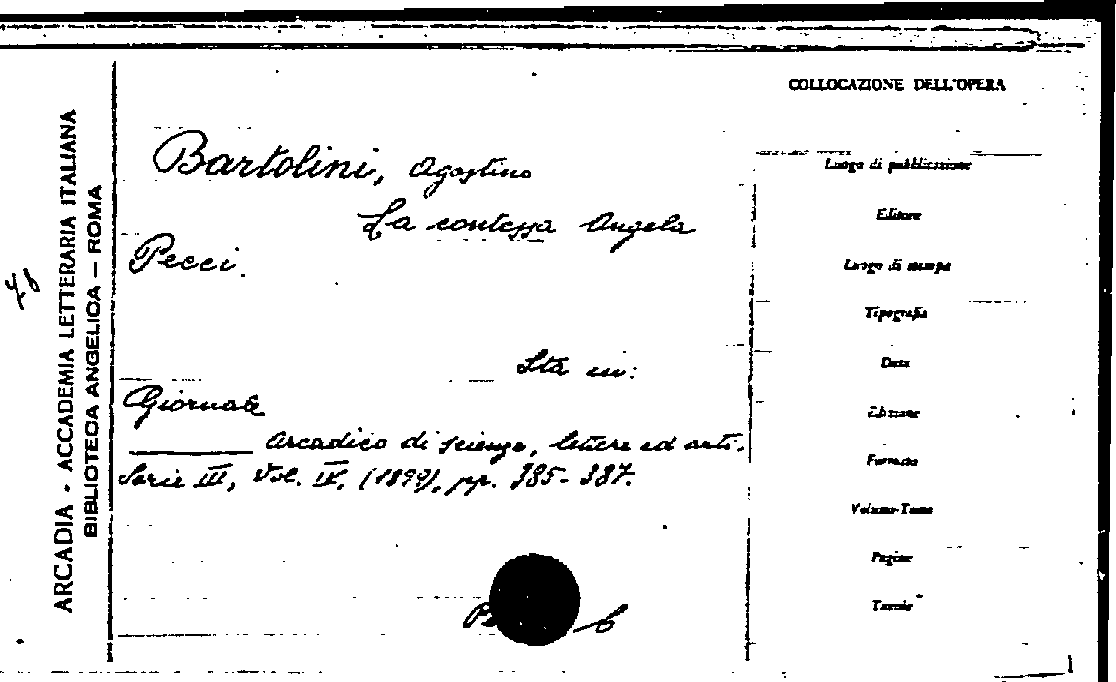 ARCADIA - ACCADEMIA LETTERARIA ITALIANA
BIBLIOTECA ANGELICA — ROMA
Bartolini, Agostino
La contessa Angela
Pecci.
Sta in:
Giornale
Arcadico di scienze, lettere ed arti.
Serie III, Vol. IV, (1899), pp. 385-387.
COLLOCAZIONE DELL'OPERA
Luogo di pubblicazione
Editore
Luogo di stampa
Tipografia
Data
Edizione
Formato
Volume-Tomo
Pagine
Tavole